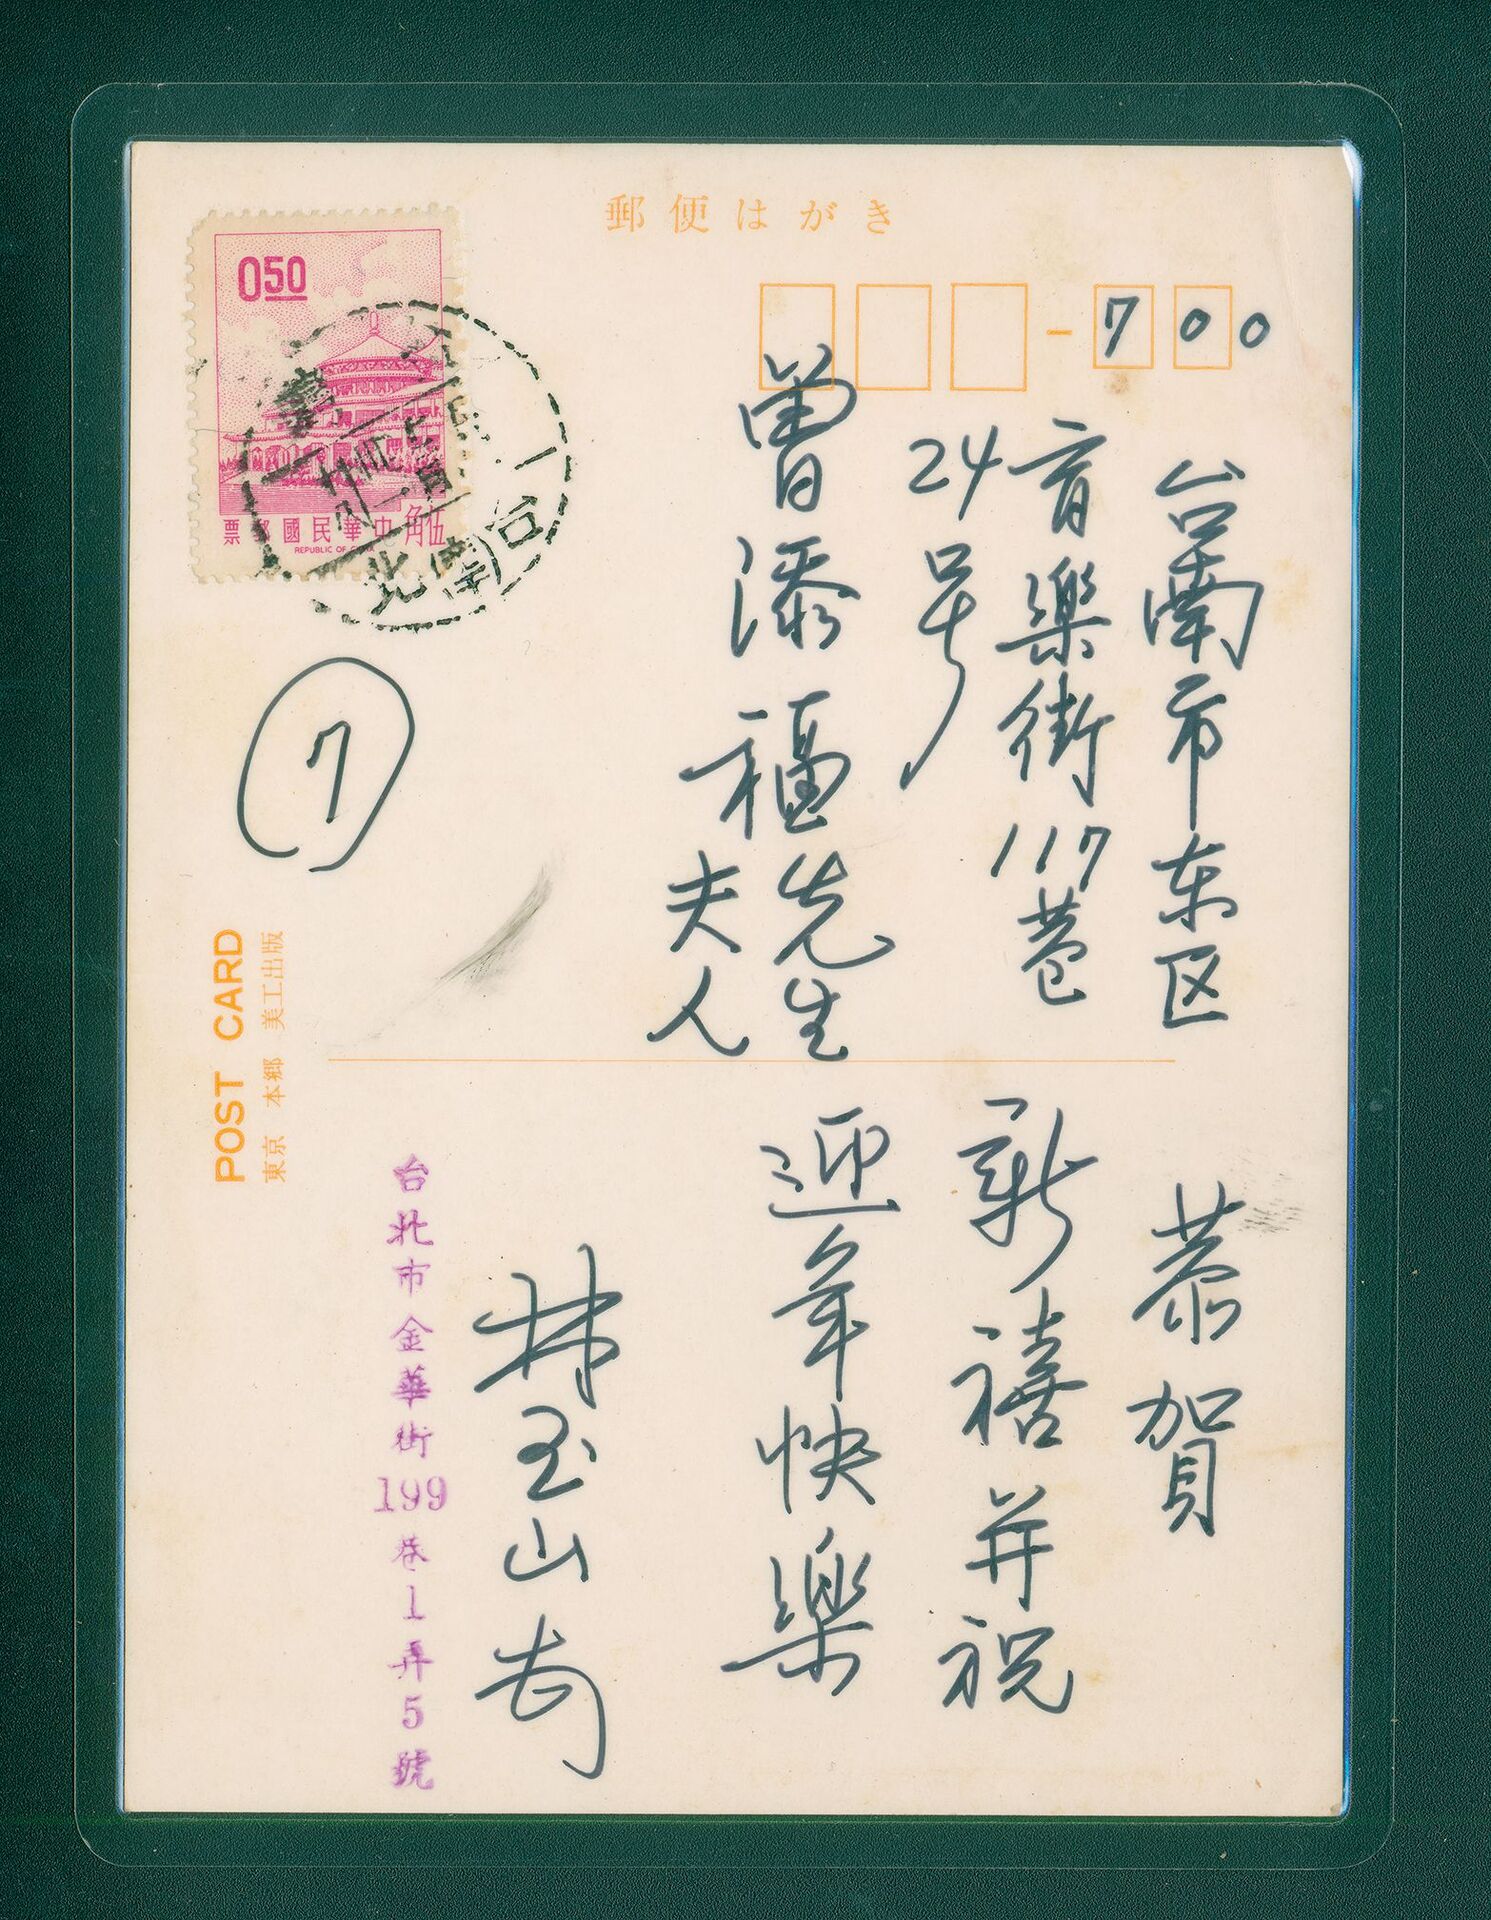 郵便はがき
0.50
伍角
中華民國郵票
REPUBLIC OF CHINA
台
北
700
台南市东区
育樂街117巷
24号
曾添福先生
夫人
7
POST CARD
東京 本郷 美工出版
恭賀
新禧并祝
迎年快樂
林玉山
台北市金華街199巷1弄5號